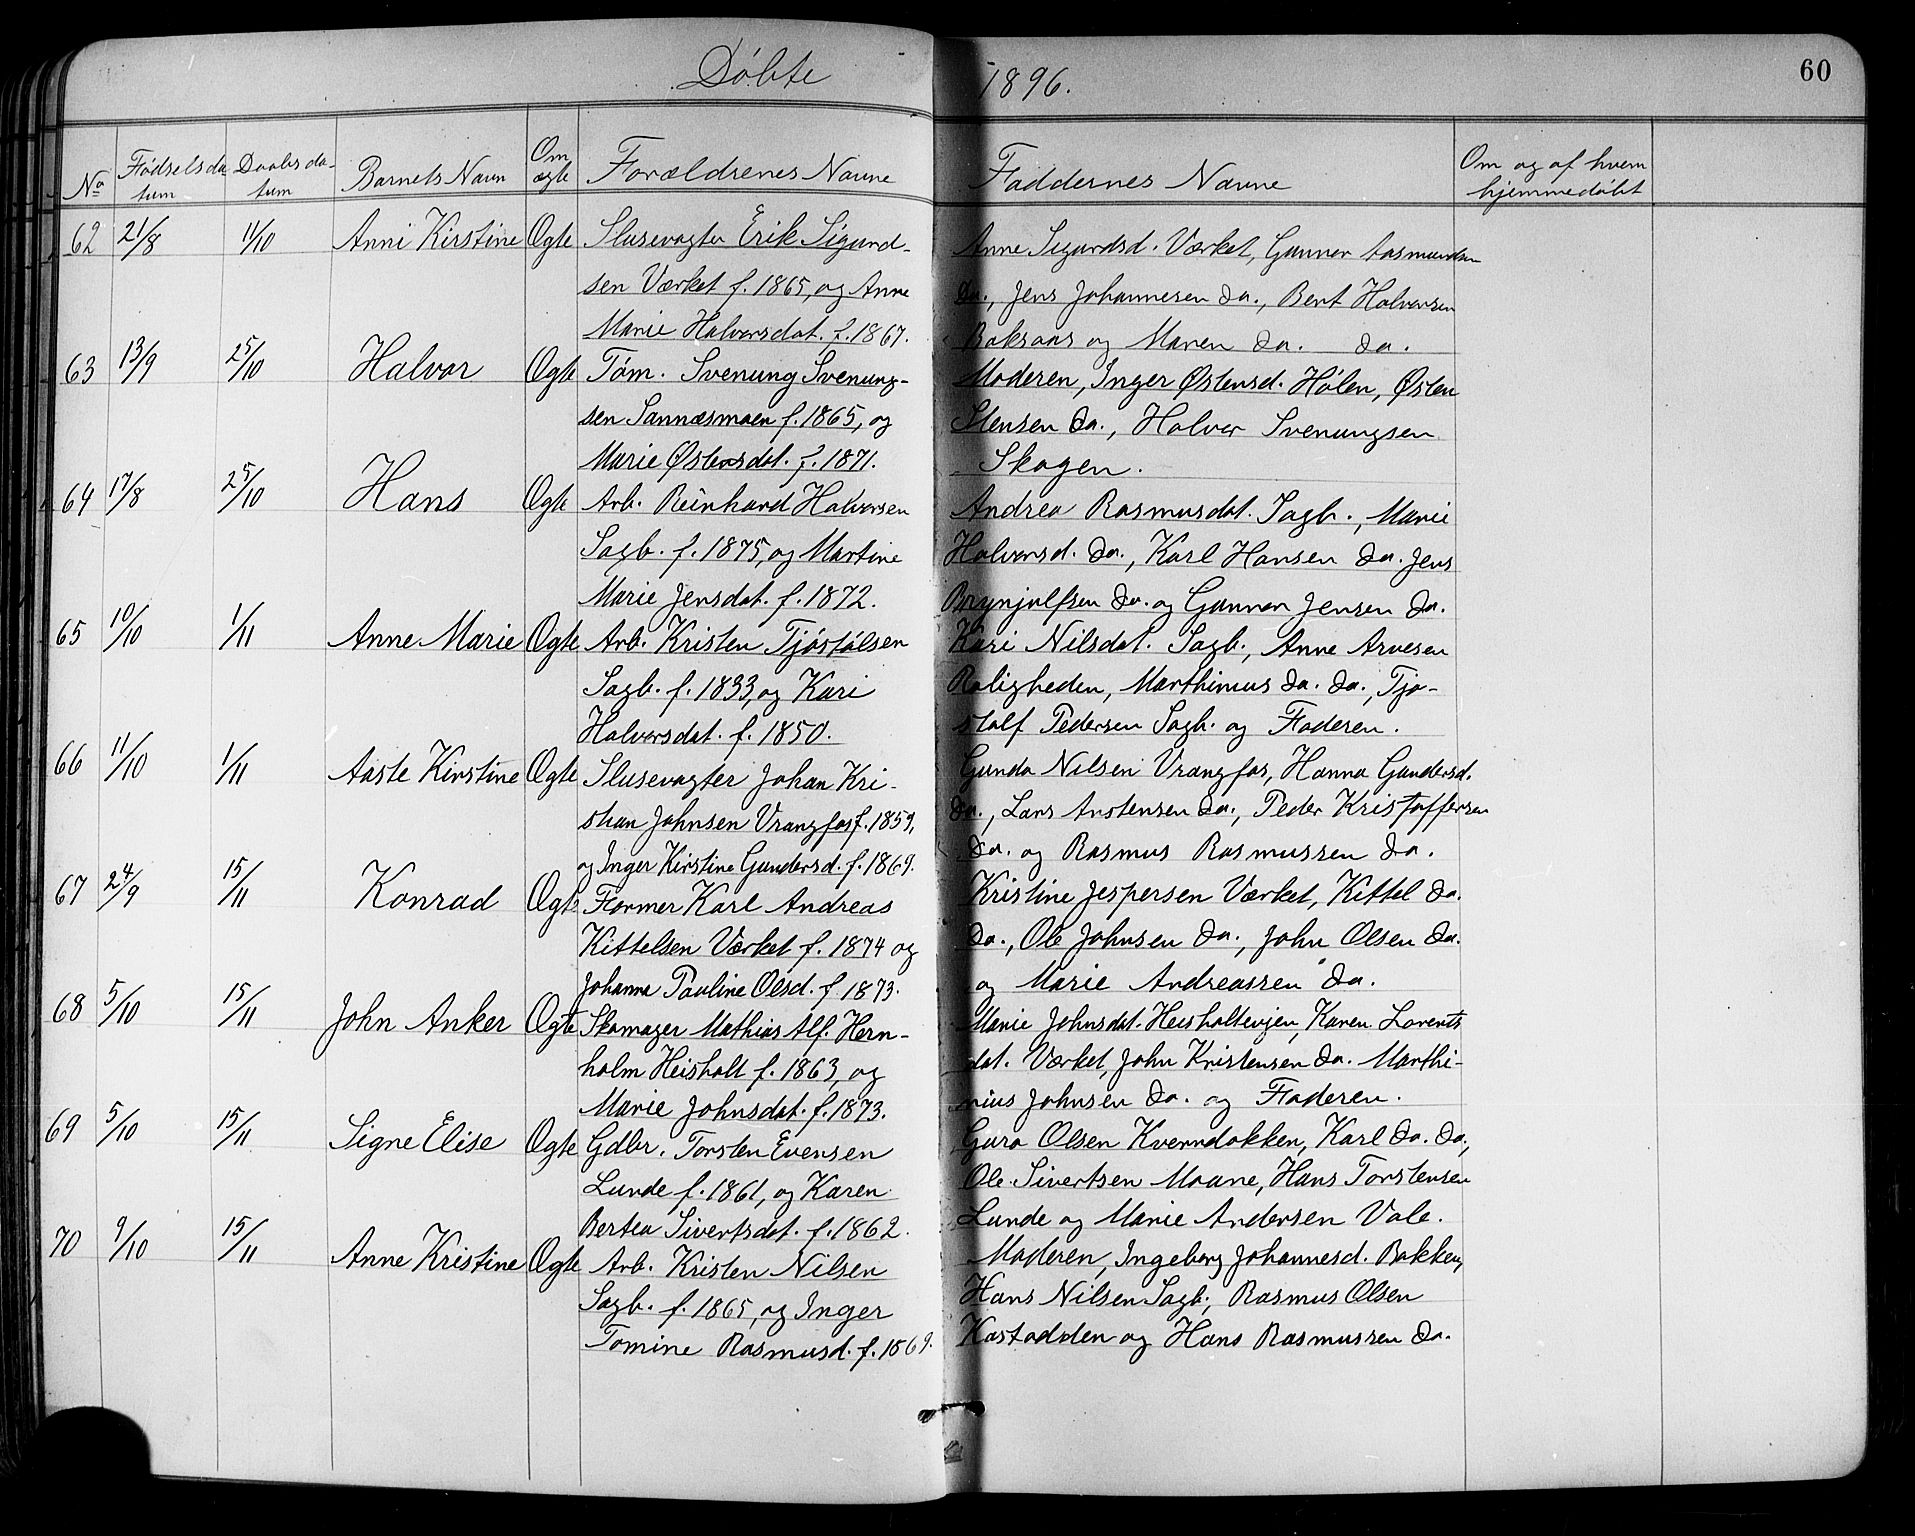 Døbte 1896. 60
Nº Fødselsda- Daabsda- Barnets Navn Om Forældrenes Navne Faddernes Navne Om og af hvem
tum tum ægte hjemmedøbt
62 21/8 11/10 Anni Kirstine Ogte Slusevogter Erik Sigurd- Anne Sigurdsd. Værket, Gunner Aasmundsen
sen Værket f. 1865, og Anne do., Jens Johannesen do., Bent Halvorsen
Marie Halvorsdat. f. 1867. Baksaas og Maren do. do.
63 13/9 25/10 Halvor Ogte Tøm. Svenung Svenung- Moderen, Inger Østensd. Hølen, Østen
sen Sannæsmoen f. 1865, og Stensen do., Halvor Svenungsen
Marie Østensdat. f. 1871. Skogen.
64 17/8 25/10 Hans Ogte Arb. Reinhard Halvorsen Andrea Rasmusdat. Sagb., Marie
Sagb. f. 1875, og Martine Halvorsd. do., Karl Hansen do. Jens
Marie Jensdat. f. 1872. Brynjulfsen do. og Gunner Jensen do.
65 10/10 1/11 Anne Marie Ogte Arb. Kristen Tjøstølsen Kari Nilsdat. Sagb., Anne Arvesen
Sagb. f. 1833, og Kari Roligheden, Marthinius do. do., Tjo-
Halvorsdat. f. 1850. stolf Pedersen Sagb. og Faderen.
66 11/10 1/11 Aaste Kirstine Ogte Slusevogter Johan Kri- Gunda Nilsen Vrangfos, Hanna Gundersd.
stian Johnsen Vrangfos f. 1859, do., Lars Anstensen do., Peder Kristoffersen
og Inger Kirstine Gundersd. f. 1869. do. og Rasmus Rasmussen do.
67 24/9 15/11 Konrad Ogte Former Karl Andreas Kristine Jespersen Værket, Kittel do.
Kittelsen Værket f. 1874 og do., Ole Johnsen do., John Olsen do.
Johanne Pauline Olsd. f. 1873. og Marie Andreassen do.
68 5/10 15/11 John Anker Ogte Skomager Mathias Alf. Hern- Marie Johnsdat. Heisholtveien, Karen Lorents
holm Heisholt f. 1863, og dat. Værket, John Kristensen do. Marthi-
Marie Johnsdat. f. 1873. nius Johnsen do. og Faderen.
69 5/10 15/11 Signe Elise Ogte Gdbr. Torsten Evensen Guro Olsen Kverndokken, Karl do. do.,
Lunde f. 1861, og Karen Ole Sivertsen Moane, Hans Torstensen
Bertea Sivertsdat. f. 1862. Lunde og Marie Andersen Vale.
70 9/10 15/11 Anne Kristine Ogte Arb. Kristen Nilsen Moderen, Ingeborg Johannesd. Bakken,
Sagb. f. 1865, og Inger Hans Nilsen Sagb., Rasmus Olsen
Tomine Rasmusd. f. 1869. Kastodden og Hans Rasmussen do.